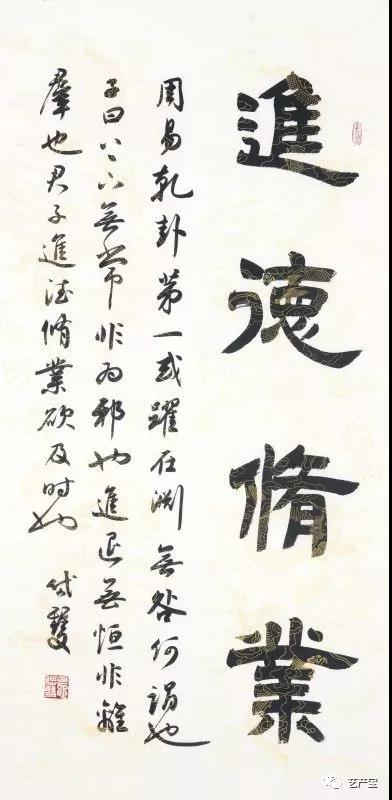 進德脩業
周易乾卦第一或躍在淵無咎何謂也
子曰上下無常非为邪也進退無恒非離
羣也君子進德脩業欲及時也
艺产宝